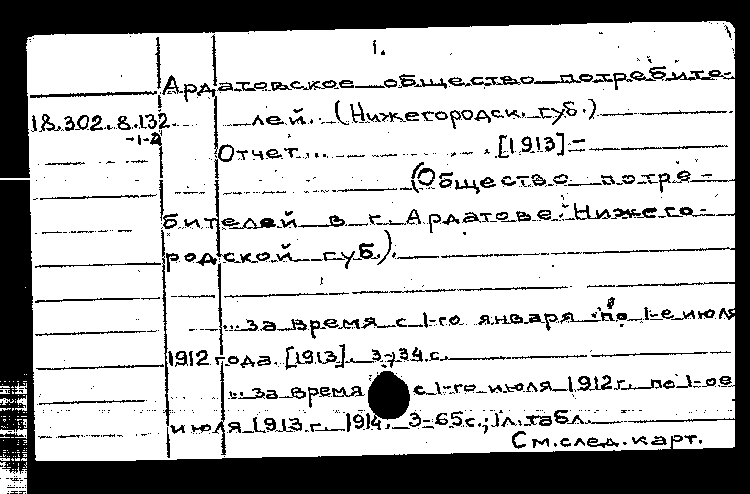 1.
Ардатовское общество потребите-
18.302.8.132 лей. (Нижегородск. губ.)
-1-2
Отчет... [1913]-
(Общество потре-
бителей в г. Ардатове Нижего-
родской губ.).
...за время с 1-го января по 1-е июля
1912 года. [1913]. 34 с.
... за время с 1-го июля 1912 г. по 1-ое
июля 1913 г. 1914. 3-65 с.; 1 л. табл.
См. след. карт.